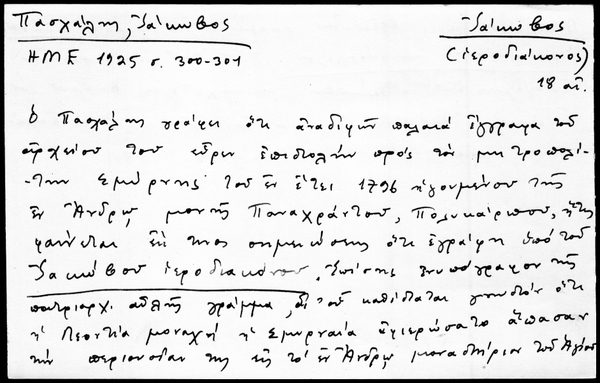 Πασχάλης, Ἰάκωβος
Ἰάκωβος
ΗΜΕ 1925 σ. 300-301
(ἱεροδιάκονος)
18 αἰ.
ὁ Πασχάλης γράφει ὅτι ἀναδιφῶν παλαιὰ ἔγγραφα τοῦ
ἀρχείου του εὗρεν ἐπιστολὴν πρὸς τὸν μητροπολί-
-την Σμύρνης τοῦ ἐν ἔτει 1796 ἡγουμένου τῆς
ἐν Ἄνδρῳ μονῆς Παναχράντου, Πολυκάρπου, ἥτις
φαίνεται ἔκ τινος σημειώσεως ὅτι ἐγράφη ὑπὸ τοῦ
Ἰακώβου ἱεροδιακόνου. Ἐπίσης ἐνυπόγραφον τῆς
πατριαρχ. αὐλῆς γράμμα, δι' οὗ καθίσταται γνωστὸν ὅτι
ἡ Λεοντία μοναχὴ ἡ Σμυρναία ἀφιερώσατο ἅπασαν
τὴν περιουσίαν της εἰς τὸ ἐν Ἄνδρῳ μοναστήριον τοῦ Ἁγίου